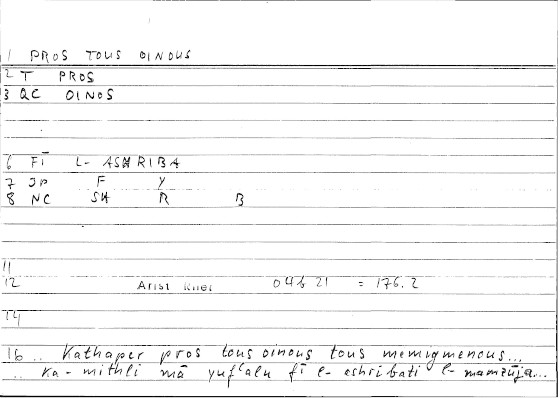 1 PROS TOUS OINOUS
2 T PROS
3 QC OINOS
6 FĪ L- ASHRIBA
7 JP F Y
8 NC SH R B
11
12 Arist Rhet 04b 21 = 176.2
14
16 .. Kathaper pros tous oinous tous memigmenous...
.. ka-mithli mā yufʿalu fī l-ashribati l-mamzūja...